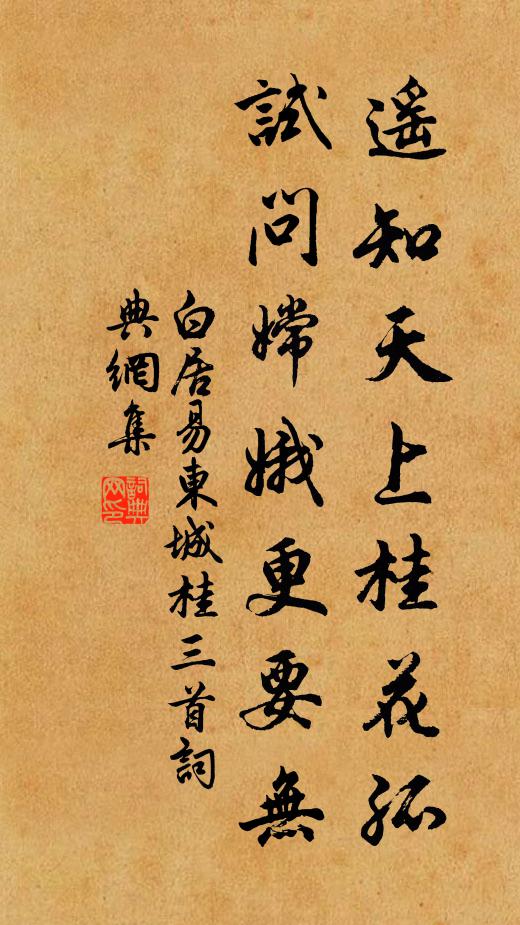 遥知天上桂花孤
試問嫦娥更要無
白居易東城桂三首詞
典網集
詞典網印